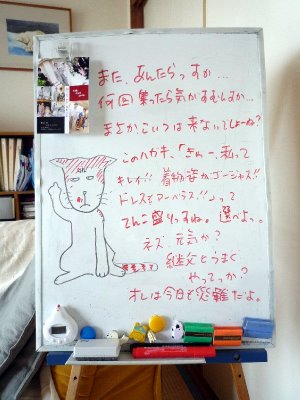 また、あんたらっすか…
何回集ったら気がすむんすか…
まさか、こいつは来ないでしょーね?
このハガキ、「きゃー、私って
キレイ!! 着物姿がゴージャス!!
ドレスもワンペラス!!」って
てんこ盛りっすね。選べよ、。
ネズ、元気か?
継父とうまく
やってっか?
オレは今日も災難だよ。